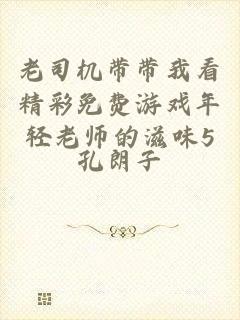 老司机带带我看
精彩免费游戏年
轻老师的滋味5
孔朗子